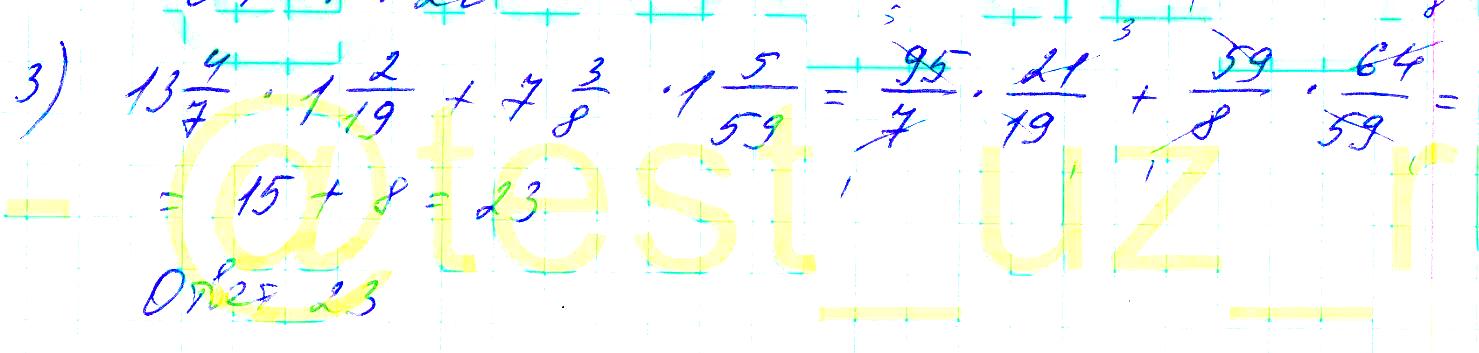 3) 13 4/7 · 1 2/19 + 7 3/8 · 1 5/59 = 95/7 · 21/19 + 59/8 · 64/59 =
= 15 + 8 = 23
Ответ 23
@test_uz_r